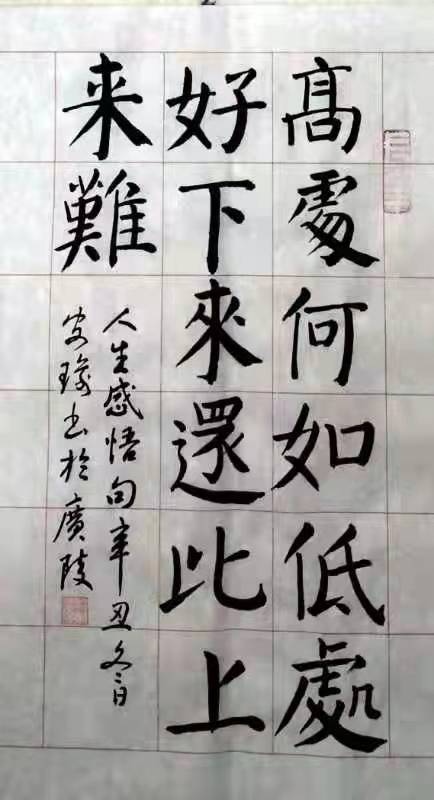 髙處何如低處
好下來還比上
来難
人生感悟句辛丑冬日
书於廣陵